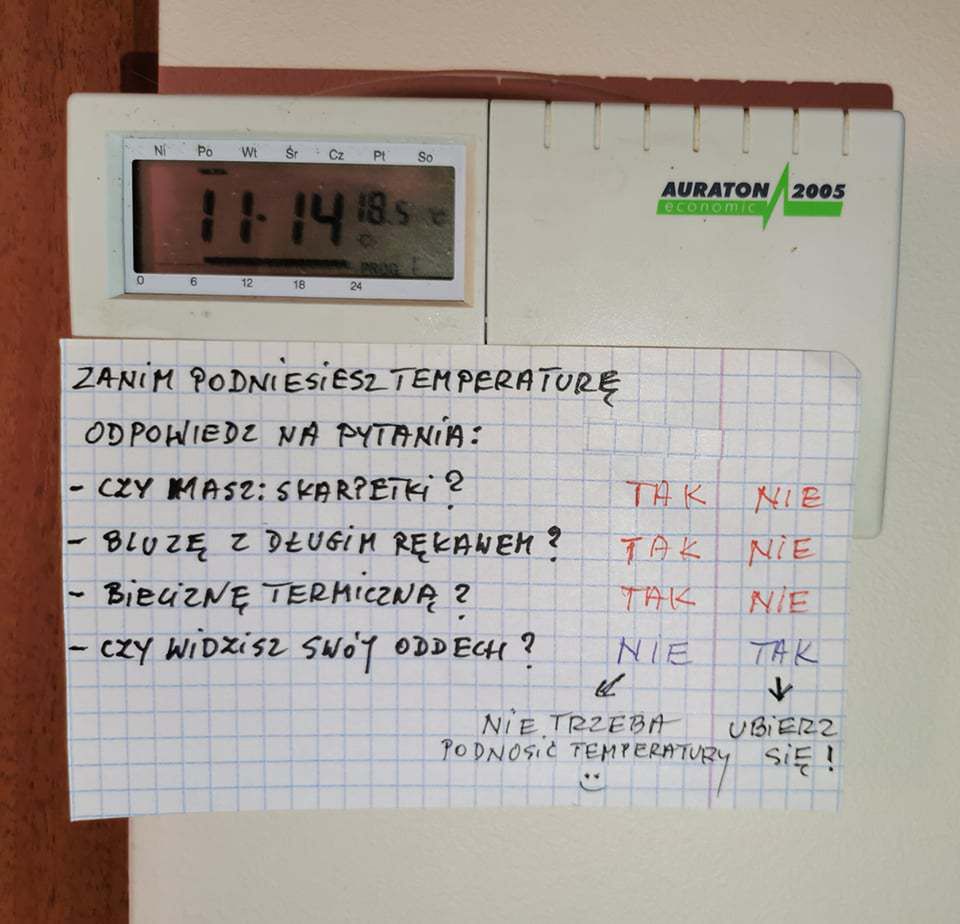 Ni Po Wt Śr Cz Pt So
11:14 18.5 °C
PROG 1
0 6 12 18 24
AURATON 2005
economic
ZANIM PODNIESIESZ TEMPERATURĘ
ODPOWIEDZ NA PYTANIA:
- CZY MASZ: SKARPETKI? TAK NIE
- BLUZĘ Z DŁUGIM RĘKAWEM? TAK NIE
- BIELIZNĘ TERMICZNĄ? TAK NIE
- CZY WIDZISZ SWÓJ ODDECH? NIE TAK
NIE TRZEBA UBIERZ
PODNOSIĆ TEMPERATURY SIĘ!